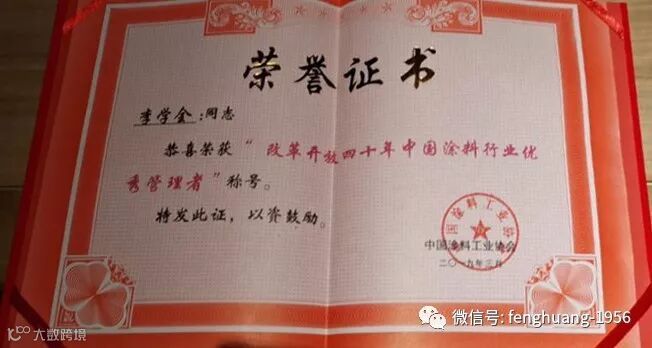 荣誉证书
李学会:同志
恭喜荣获“改革开放四十年中国涂料行业优
秀管理者”称号。
特发此证,以资鼓励。
中国涂料工业协会
二〇一九年三月
微信号: fenghuang-1956
大数跨境